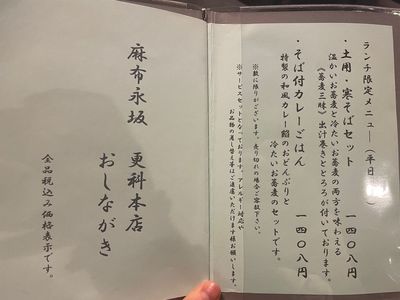 ランチ限定メニュー（平日
・土用・寒そばセット　一四〇八円
温かいお蕎麦と冷たいお蕎麦の両方を味わえる
《蕎麦三昧》出汁巻きととろろが付いております。
・そば付カレーごはん　一四〇八円
特製の和風カレー餡のおどんぶりと
冷たいお蕎麦のセットです。
※数に限りがございます。売り切れの場合ご容赦下さい。
※サービスセットとなっております。アレルギー対応や
お品物の差し替え等はご遠慮いただけます様お願いします。
麻布永坂　更科本店
おしながき
全品税込み価格表示です。